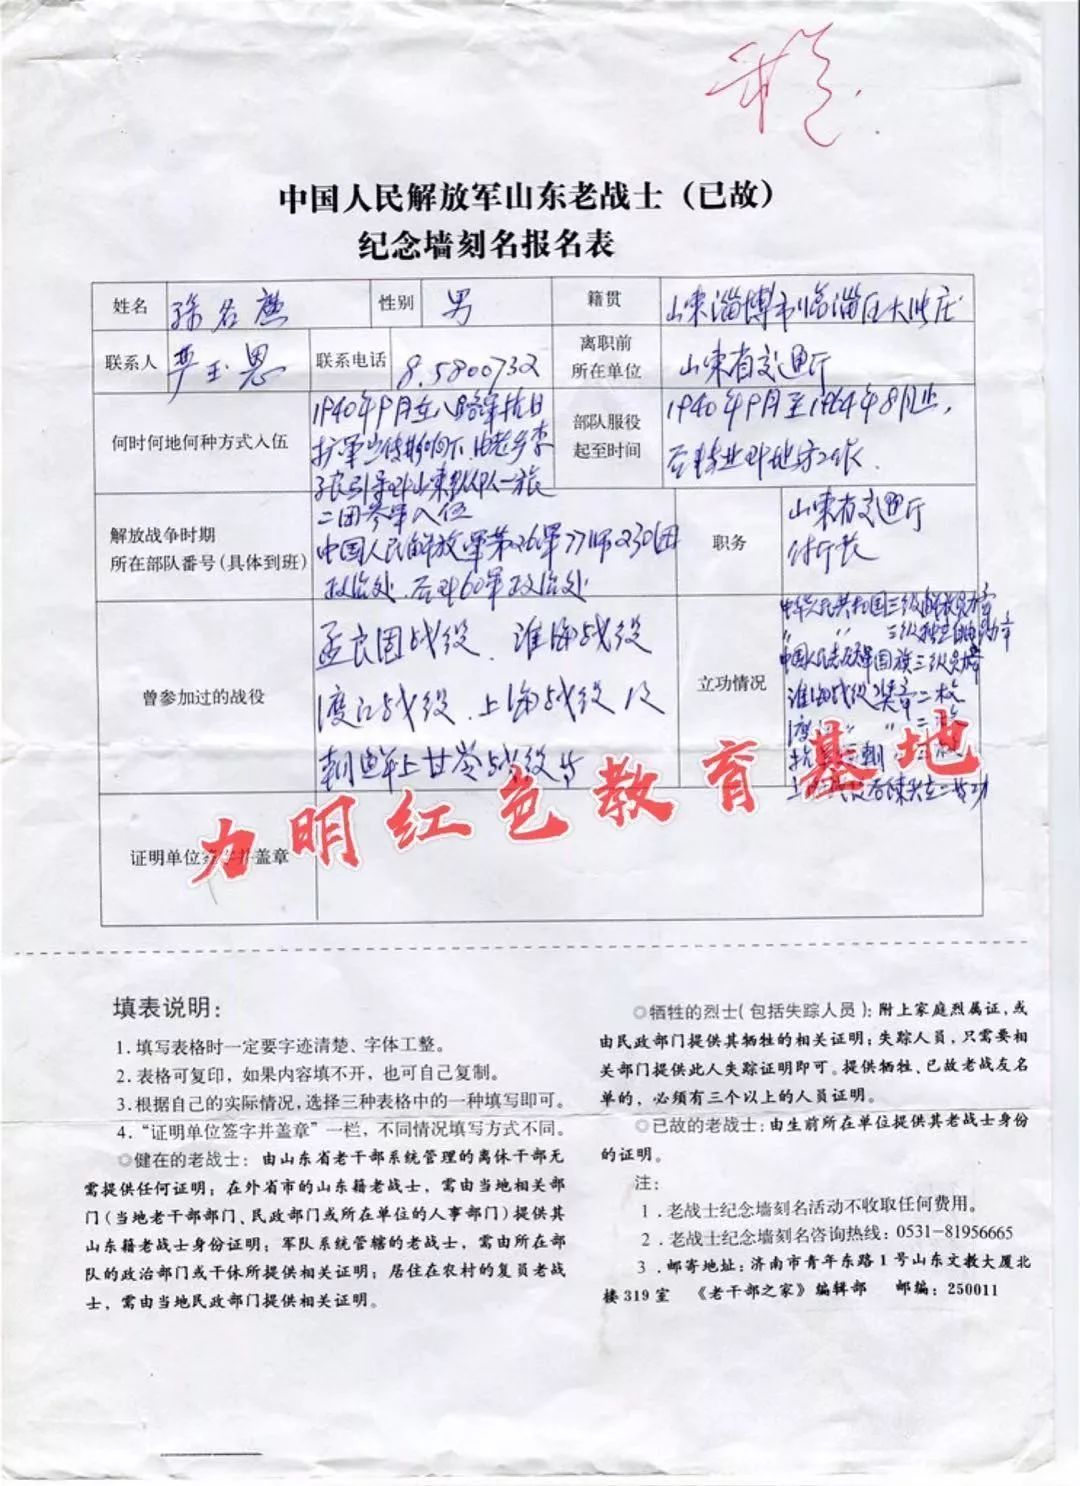 中国人民解放军山东老战士（已故）
纪念墙刻名报名表
姓名 孙名 性别 男 籍贯 山東淄博市临淄区大 庄
联系人 严玉恩 联系电话 8.5800732 离职前所在单位 山東省交通厅
何时何地何种方式入伍
1940年9月在八路军抗日
扩军宣传影响下.由老乡李
引导到山東纵队一旅
二团参军入伍
部队服役起至时间
1940年9月至1964年8月止,
后转业到地方工作.
解放战争时期
所在部队番号(具体到班)
中国人民解放军第26军77师230团
政治处.后到60军政治处
职务
山東省交通厅
付厅长
曾参加过的战役
孟良固战役、淮海战役
渡江战役.上海战役及
朝鲜上甘岭战役等
立功情况
中华人民共和国三级解放勋章
〃 〃 三级独立自由勋章
中国人民志愿军国旗三级勋章
淮海战役奖章二枚
渡 〃 二枚
抗 朝
立二等功
证明单位签字并盖章
力明红色教育基地
填表说明：
1. 填写表格时一定要字迹清楚、字体工整。
2. 表格可复印，如果内容填不开，也可自己复制。
3. 根据自己的实际情况，选择三种表格中的一种填写即可。
4. “证明单位签字并盖章”一栏，不同情况填写方式不同。
◎健在的老战士：由山东省老干部系统管理的离休干部无
需提供任何证明；在外省市的山东籍老战士，需由当地相关部
门(当地老干部部门、民政部门或所在单位的人事部门)提供其
山东籍老战士身份证明；军队系统管辖的老战士，需由所在部
队的政治部门或干休所提供相关证明；居住在农村的复员老战
士，需由当地民政部门提供相关证明。
◎牺牲的烈士(包括失踪人员)：附上家庭烈属证，或
由民政部门提供其牺牲的相关证明；失踪人员，只需要相
关部门提供此人失踪证明即可。提供牺牲、已故老战友名
单的，必须有三个以上的人员证明。
◎已故的老战士：由生前所在单位提供其老战士身份
的证明。
注：
1．老战士纪念墙刻名活动不收取任何费用。
2．老战士纪念墙刻名咨询热线：0531-81956665
3．邮寄地址：济南市青年东路1号山东文教大厦北
楼319室 《老干部之家》编辑部 邮编：250011